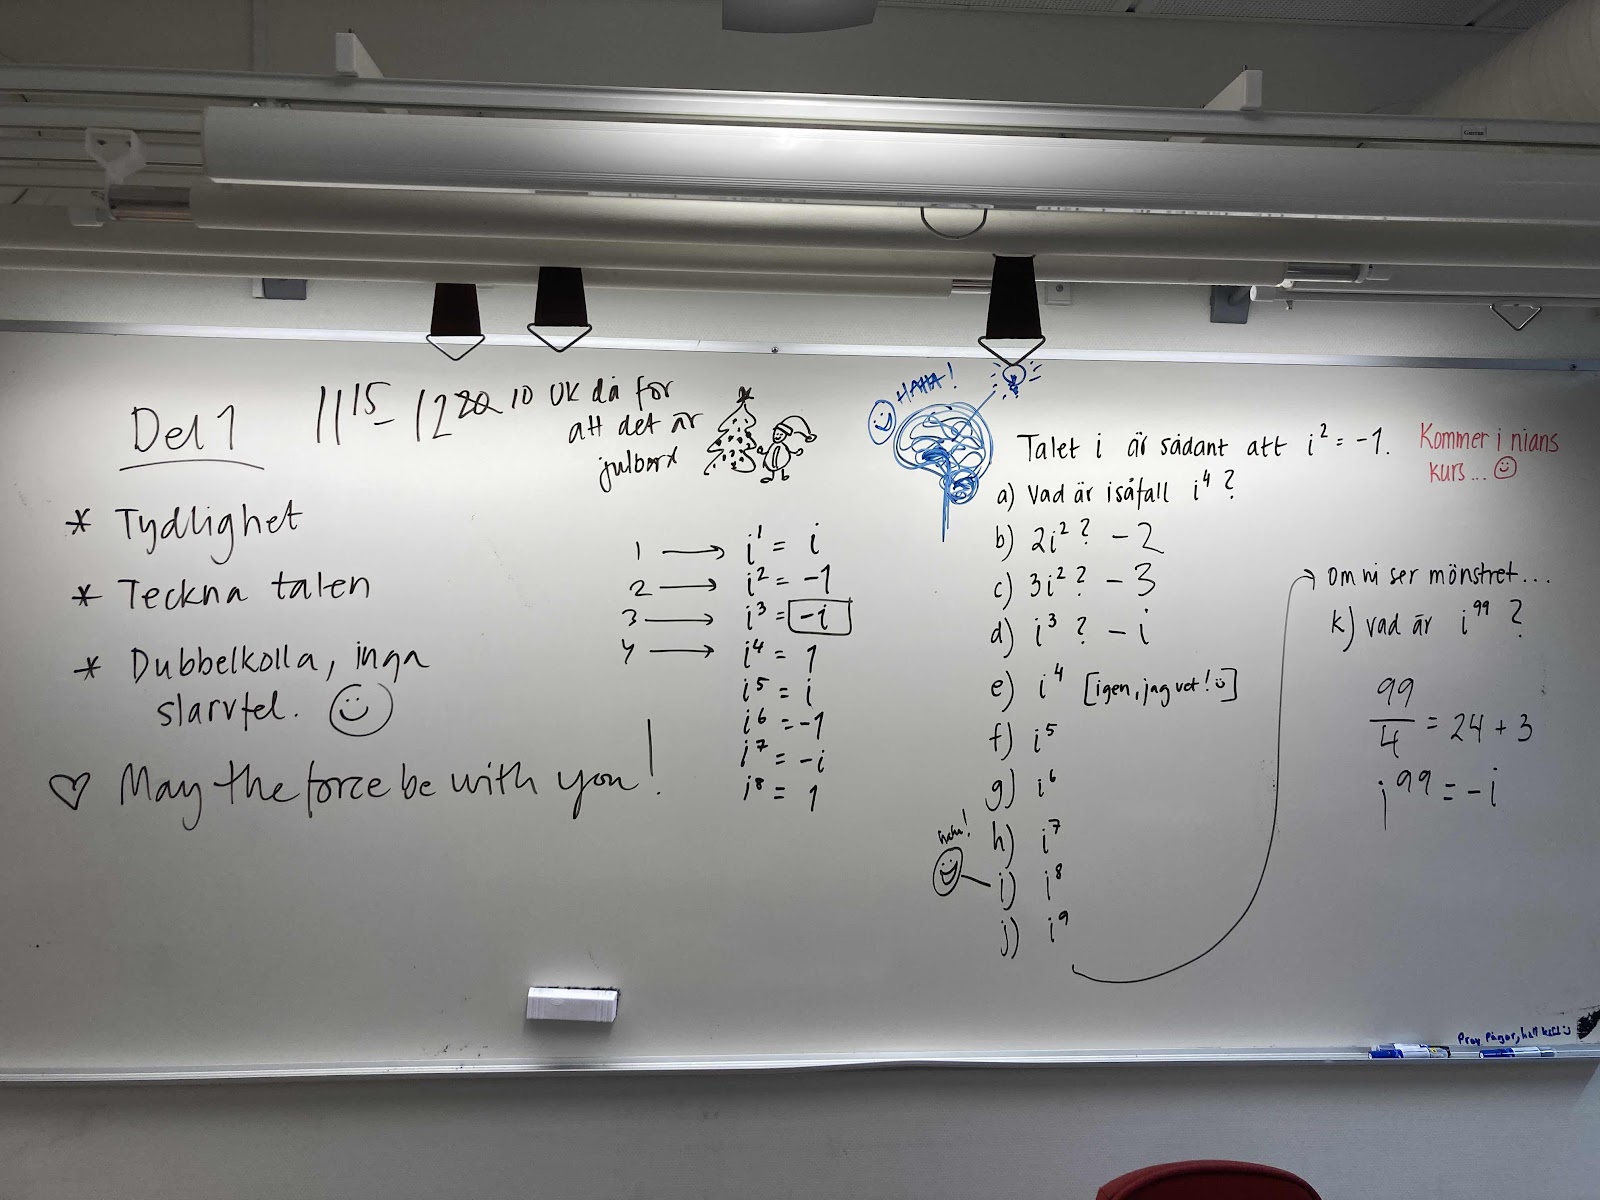 Del 1
11 15 - 12 20 10 OK då för
att det är
julbord
* Tydlighet
* Teckna talen
* Dubbelkolla, inga
slarvfel.
♡ May the force be with you!
1 → i¹ = i
2 → i² = -1
3 → i³ = -i
4 → i⁴ = 1
i⁵ = i
i⁶ = -1
i⁷ = -i
i⁸ = 1
HAHA!
Talet i är sådant att i² = -1.
a) Vad är isåfall i⁴?
b) 2i²? -2
c) 3i²? -3
d) i³? -i
e) i⁴ [igen, jag vet! ☺]
f) i⁵
g) i⁶
h) i⁷
i) i⁸
j) i⁹
Kommer i nians
kurs... ☺
→ om ni ser mönstret...
k) vad är i⁹⁹?
99/4 = 24 + 3
i⁹⁹ = -i
Prov pågår, håll